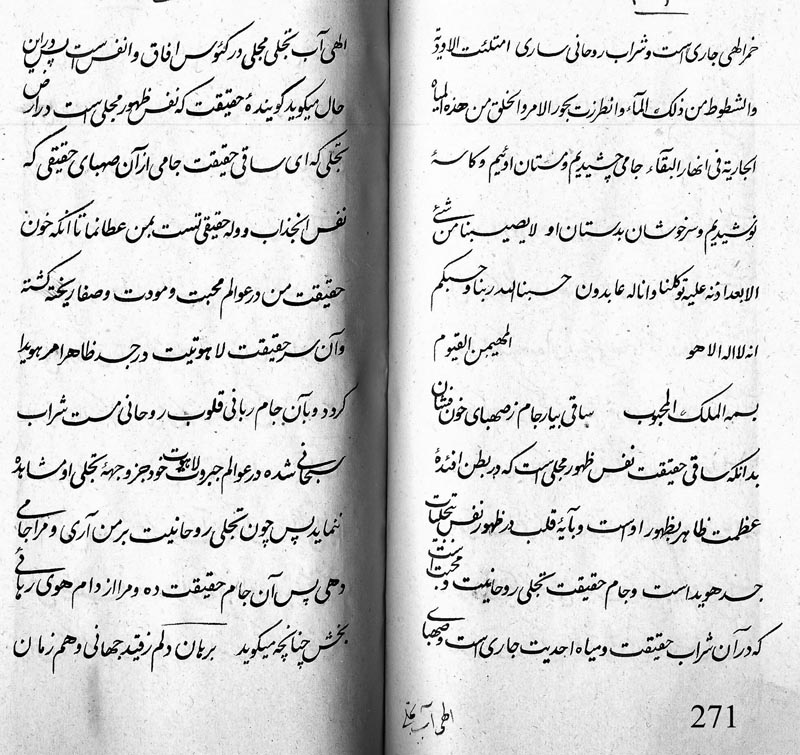 خمر الهی جاری است و شراب روحانی ساری امتلئت الاودیة
والشطوط من ذلک المآء وانطرزت بحور الامر والخلق من هذه المیاه
الجاریة فی انهار البقآء جامی چشیدیم و مستان اوئیم و کاسهٔ
نوشیدیم و سرخوشان بدستان او لا یصیبنا من شیئ
الا بعد اذنه علیه توکلنا وانا له عابدون حسبنا الله ربنا و حسبکم
انه لا اله الا هو المهیمن القیوم
بسمه الملک المحبوب ساقی بیار جام ز صهبای خون فشان
بدانکه ساقی حقیقت نفس ظهور مجلی است که در بطن افئدهٔ
عظمت ظاهر بظهور او است و بآیهٔ قلب در ظهور نفس تجلیات
جسد هویدا است و جام حقیقت تجلی روحانیت و محبت است
که در آن شراب حقیقت و میاه احدیت جاری است و صهبای
الهی آب تجلی
271
الهی آب تجلی مجلی در کئوس افاق و انفس است پس در این
حال میگوید گویندهٔ حقیقت که نفس ظهور مجلی است در ارض
تجلی که ای ساقی حقیقت جامی از آن صهبای حقیقی که
نفس انجذاب و وله حقیقی تست بمن عطا نما تا آنکه خون
حقیقت من در عوالم محبت و مودت و صفا ریخته گشته
و آن سر حقیقت لاهوتیت در جسد ظاهر امر هویدا
گردد و بآن جام ربانی قلوب روحانی مست شراب
سبحانی شده در عوالم جبروت لاهوت خود جز وجههٔ تجلی او مشاهده
ننماید پس چون تجلی روحانیت بر من آری و مرا جامی
دهی پس آن جام حقیقت ده و مرا از دام هوی رهائی
بخش چنانچه میگوید برهان دلم ز قید جهانی و هم زمان